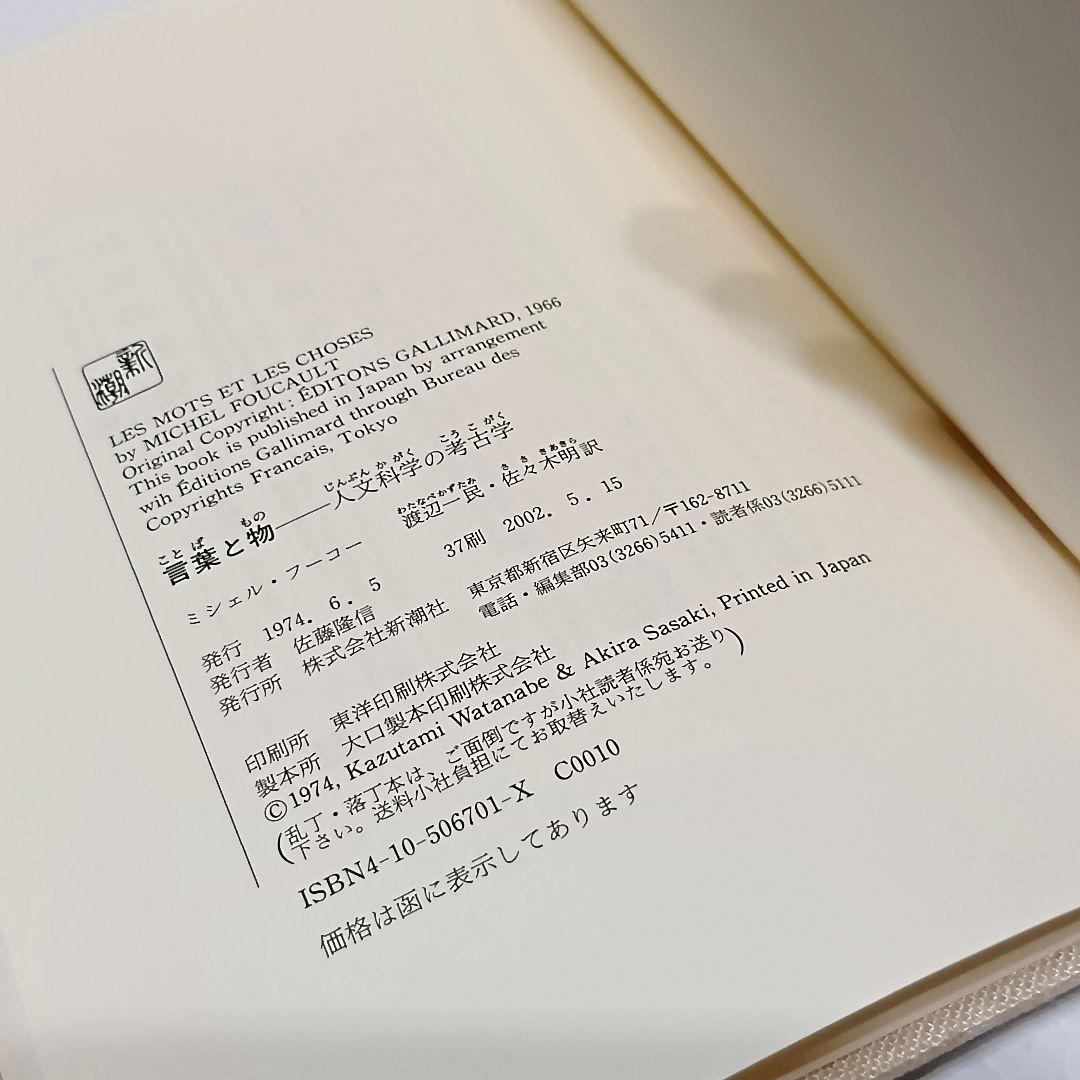 新潮
LES MOTS ET LES CHOSES
by MICHEL FOUCAULT
Original Copyright: ÉDITONS GALLIMARD, 1966
This book is published in Japan by arrangement
wih Éditions Gallimard through Bureau des
Copyrights Francais, Tokyo
ことば もの じんぶんかがく こうこがく
言葉と物――人文科学の考古学
わたなべかずたみ ささきあきら
ミシェル・フーコー 渡辺一民・佐々木明訳
発行 1974. 6. 5 37刷 2002. 5. 15
発行者 佐藤隆信
発行所 株式会社新潮社 東京都新宿区矢来町71/〒162-8711
電話・編集部03(3266)5411・読者係03(3266)5111
印刷所 東洋印刷株式会社
製本所 大口製本印刷株式会社
©1974, Kazutami Watanabe & Akira Sasaki, Printed in Japan
(乱丁・落丁本は、ご面倒ですが小社読者係宛お送り
下さい。送料小社負担にてお取替えいたします。)
ISBN4-10-506701-X C0010
価格は函に表示してあります